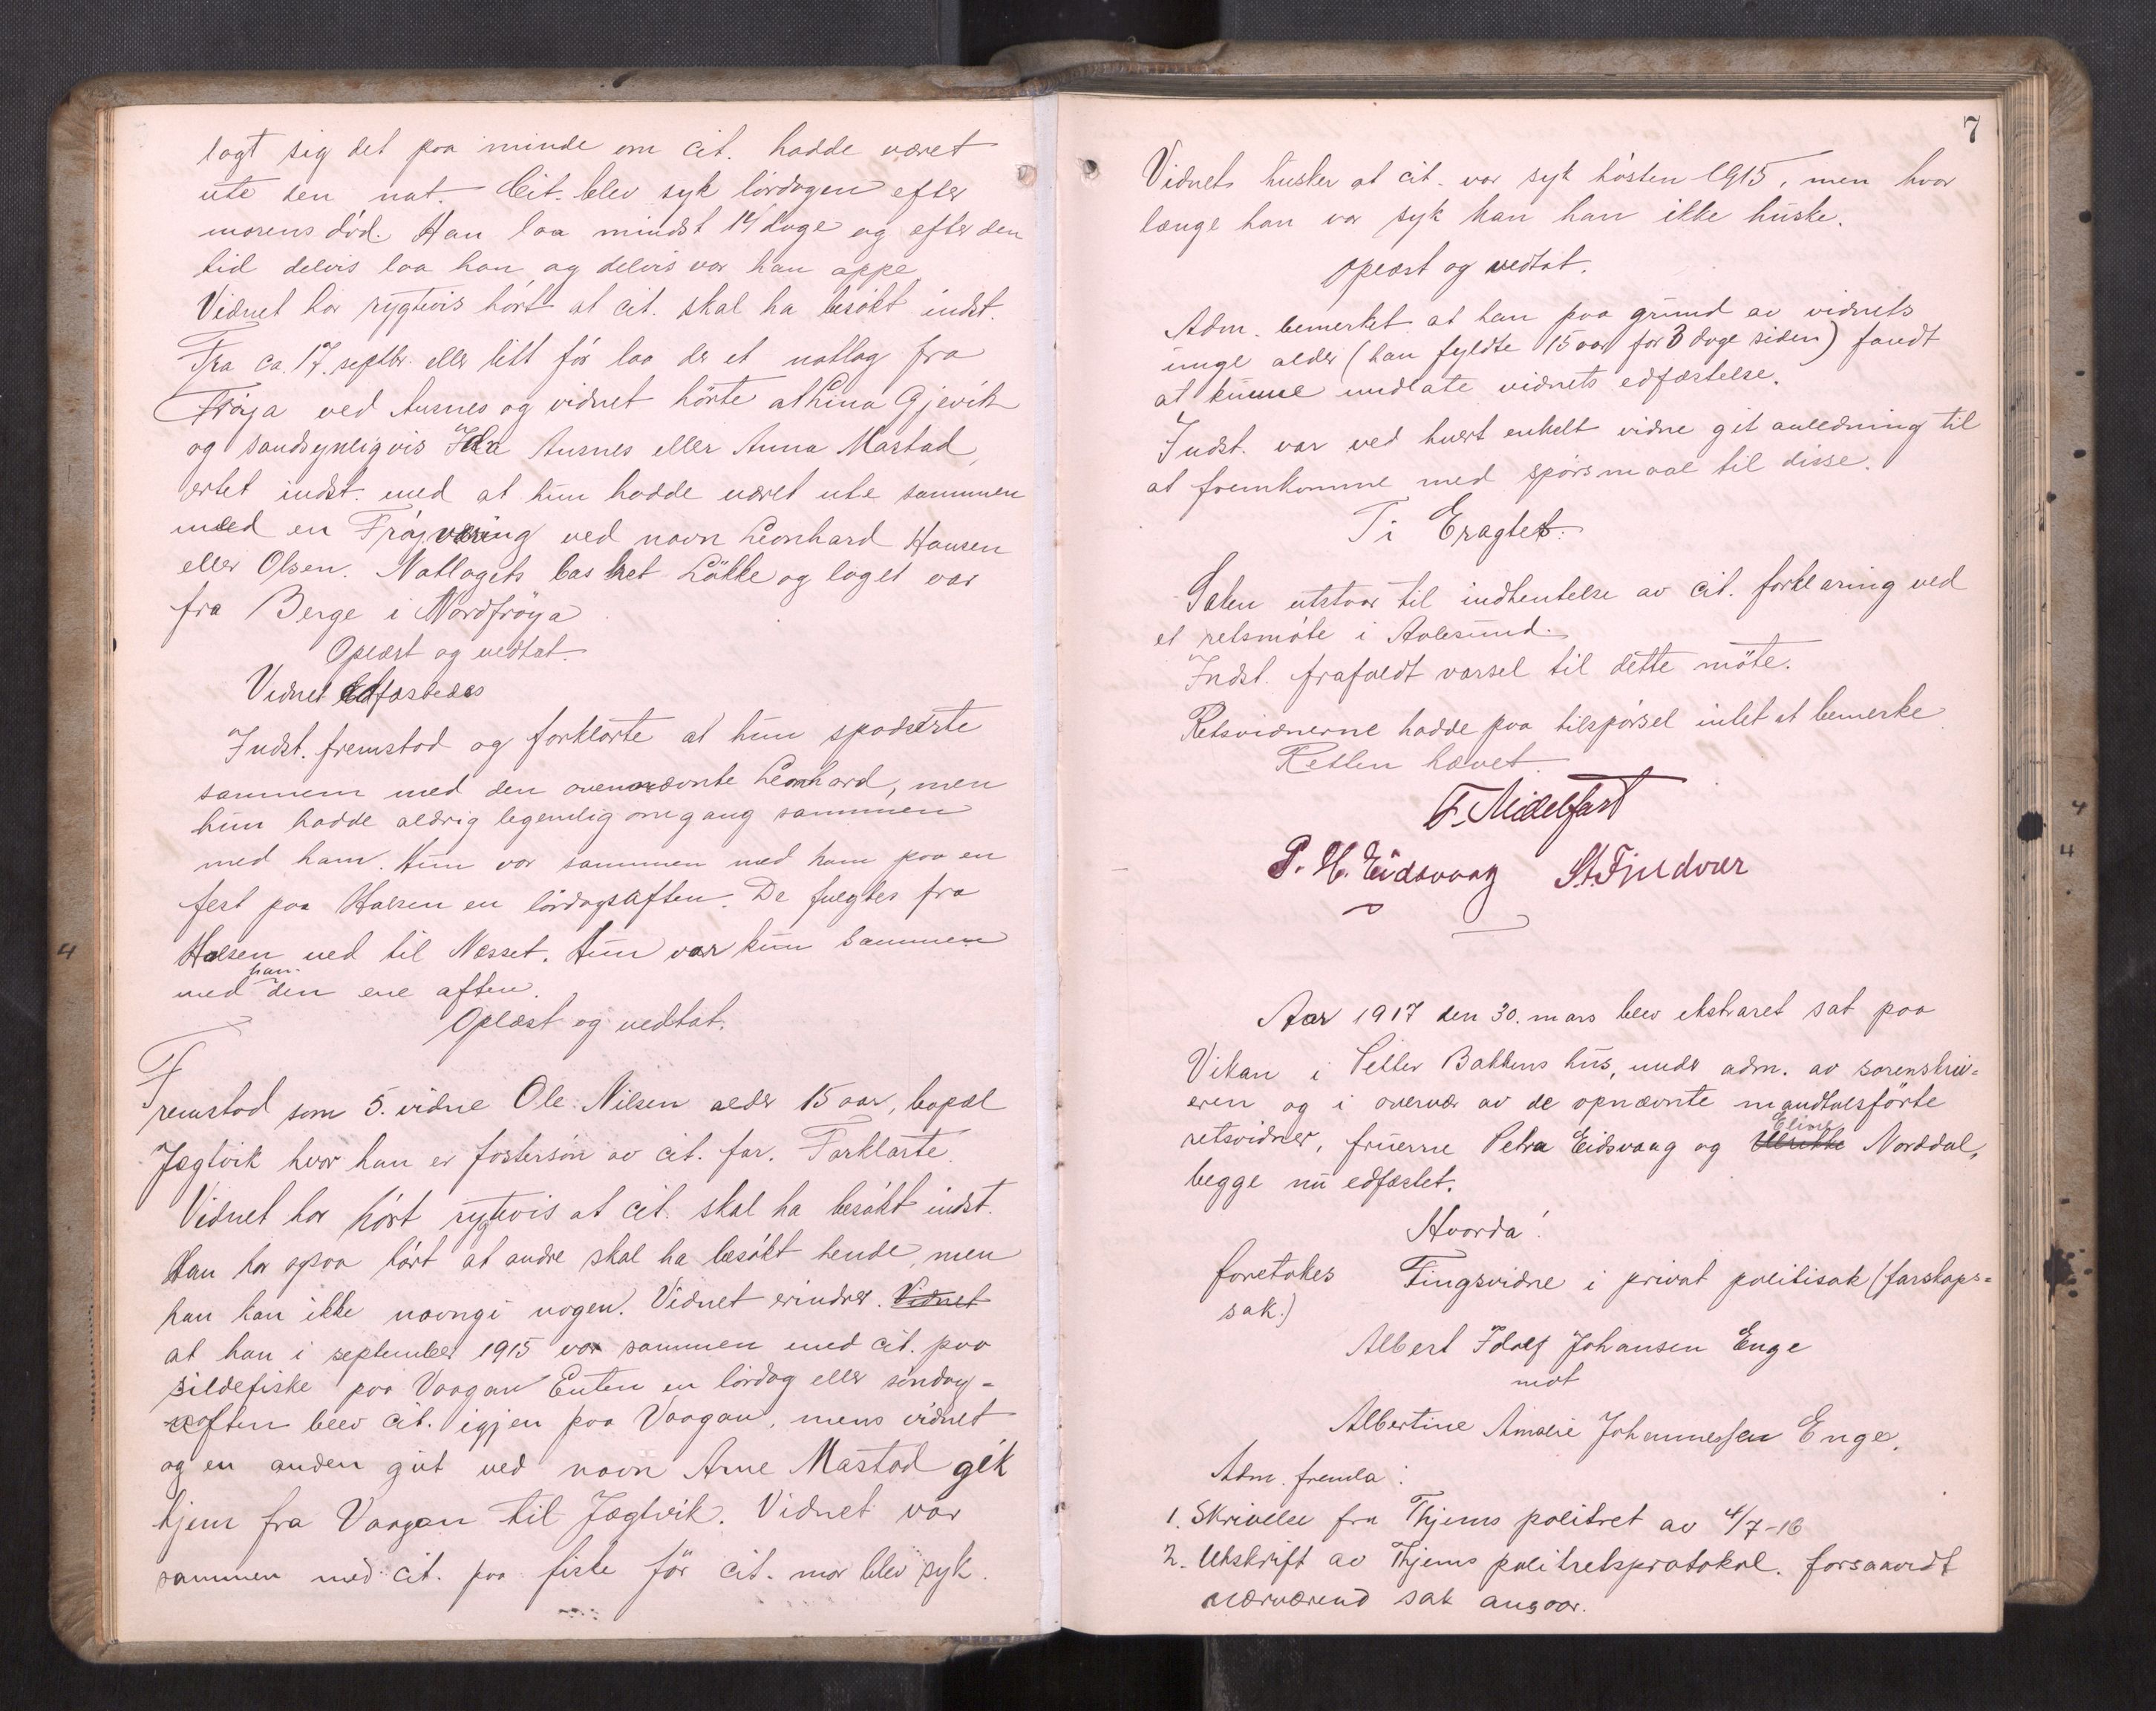 lagt sig det paa minde om cit. hadde været
ute den nat. Cit. blev syk lördagen efter
morens död. Han laa mindst 14 dage og efter den
tid delvis laa han og delvis var han oppe
Vidnet har rygtevis hört at cit. skal ha besökt indst.
Fra ca. 17. septbr. eller litt för laa der et notlag fra
Fröya ved Ausnes og vidnet hörte at Lina Gjevik
og sandsynligvis Ida Ausnes eller Anna Mastad,
ertet indst. med at hun hadde været ute sammen
med en Fröjværing ved navn Leonhard Hansen
eller Olsen. Notlagets bas het Lökke og laget var
fra Berge i Nordfröya
Oplæst og vedtat.
Vidnet edfæstedes
Indst. fremstod og forklarte at hun spaserte
sammen med den ovennævnte Leonhard, men
hun hadde aldrig legemlig omgang sammen
med ham. Hun var sammen med ham paa en
fest paa Halsen en lördagsaften. De fulgtes fra
Halsen ned til Nesset. Hun var kun sammen
med ham den ene aften.
Oplæst og vedtat.
Fremstod som 5. vidne Ole Nilsen alder 15 aar, bopæl
Jægtvik hvor han er fostersön av cit. far. Forklarte.
Vidnet har hört rygtevis at cit. skal ha besökt indst.
Han har ogsaa hört at andre skal ha besökt hende, men
han kan ikke navngi nogen. Vidnet erindrer. Vidnet
at han i september 1915 var sammen med cit. paa
sildefiske paa Vaagan Enten en lördag eller söndag-
aften blev cit. igjen paa Vaagan, mens vidnet
og en anden gut ved navn Arne Mastad gik
hjem fra Vaagan til Jægtvik. Vidnet var
sammen med cit. paa fiske för cit. mor blev syk.
7
Vidnet husker at cit. var syk hösten 1915, men hvor
længe han var syk kan han ikke huske.
Oplæst og vedtat.
Adm. bemerket at han paa grund av vidnets
unge alder (han fyldte 15 aar for 3 dage siden) fandt
at kunne undlate vidnets edfæstelse.
Indst. var ved hvert enkelt vidne git anledning til
at fremkomme med spörsmaal til disse.
Ti Eragtet:
Saken utstaar til indhentelse av cit. forklaring ved
et retsmöte i Aalesund.
Indst. frafaldt varsel til dette möte.
Retsvidnerne hadde paa tilspörsel intet at bemerke
Retten hævet.
F. Midelfart
P. H. Eidsvaag St. Fjeldvær
Aar 1917 den 30. mars blev ekstraret sat paa
Vikan i Petter Bakkens hus, under adm. av sorenskriv=
eren og i overvær av de opnævnte mandtalsförte
retsvidner, fruerne Petra Eidsvaag og Eline Norddal,
begge nu edfæstet.
Hvorda!
foretokes Tingsvidne i privat politisak (farskaps=
sak.)
Albert Idolf Johansen Enge
mot
Albertine Amalie Johannessen Enge.
Adm. fremla:
1. Skrivelse fra Thjems politret av 4/7-16
2. Utskrift av Thjems politretsprotokol. forsaavidt
nærværend sak angaar.
4
4
4